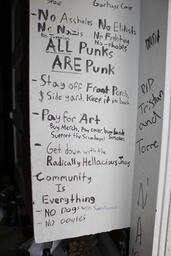 Garbage Cover
- No Assholes No Elitists
No Nazis No Fighting
ALL Punks
ARE Punk
- Stay off Front Porch,
& Side yard. Keep it in back
- Pay for Art
Buy Merch, Pay cover,
Support the
- Get down with the
Radically Hellacious Jams
Community
Is
Everything
- No Dogs
- No
RIP
Tristan
and